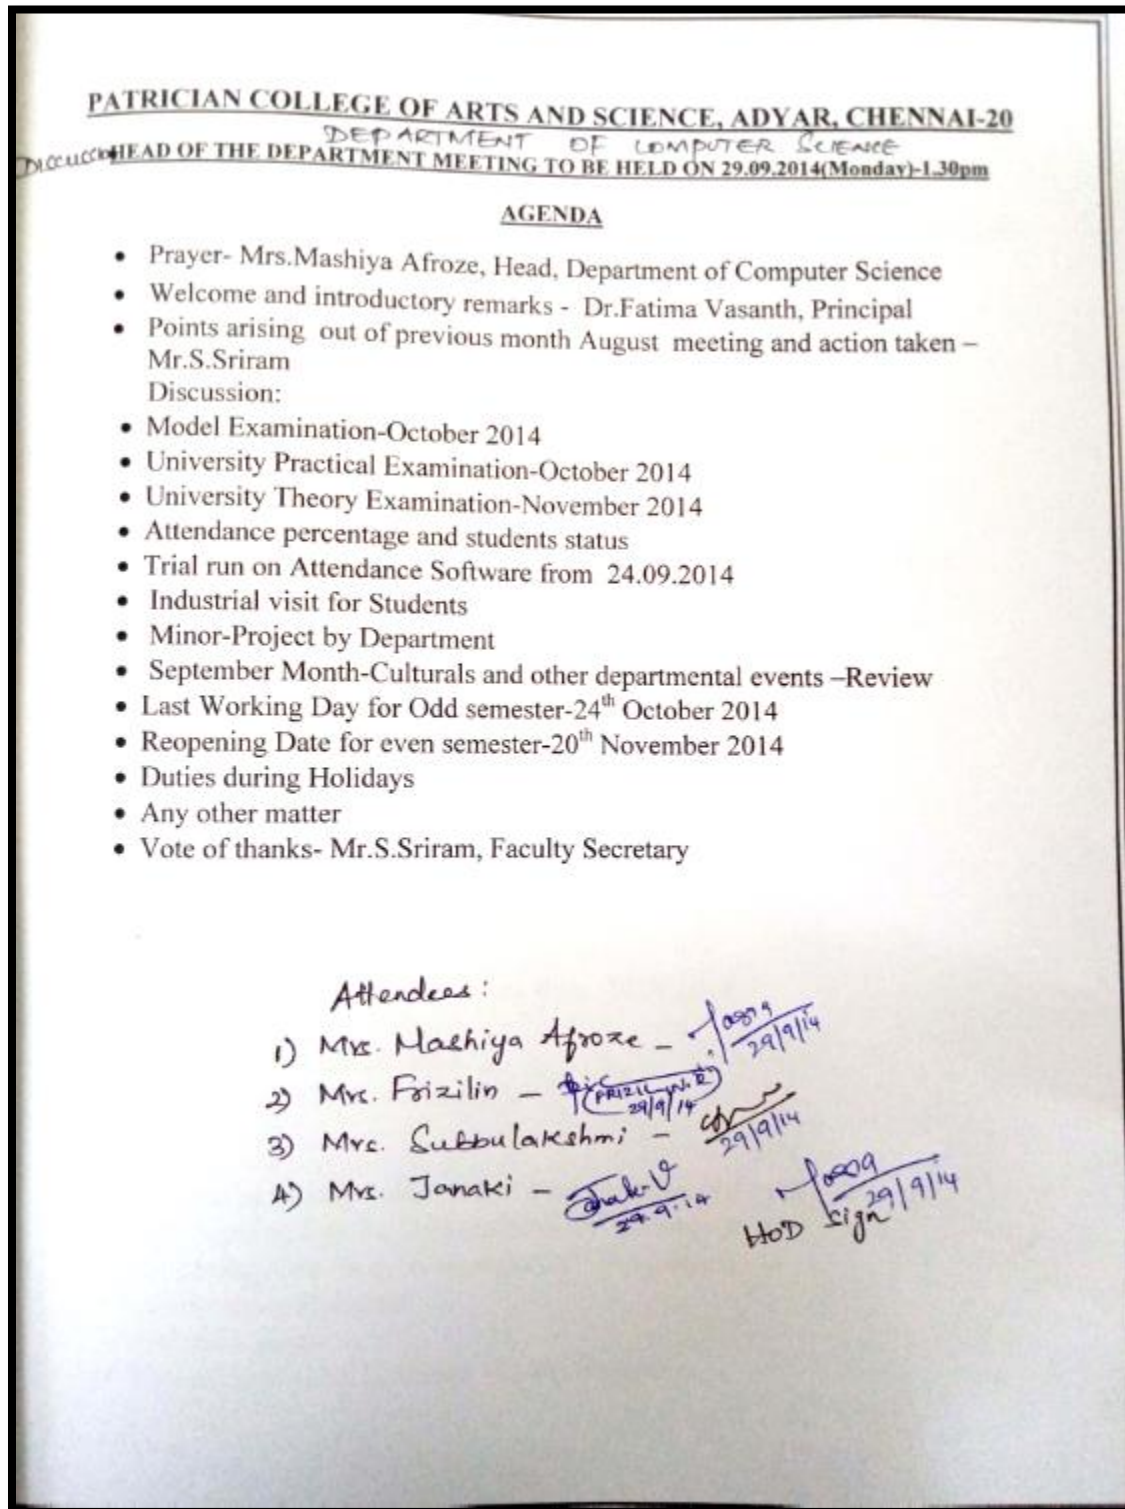 PATRICIAN COLLEGE OF ARTS AND SCIENCE, ADYAR, CHENNAI-20
DEPARTMENT OF COMPUTER SCIENCE
HEAD OF THE DEPARTMENT MEETING TO BE HELD ON 29.09.2014(Monday)-1.30pm
AGENDA
• Prayer- Mrs.Mashiya Afroze, Head, Department of Computer Science
• Welcome and introductory remarks - Dr.Fatima Vasanth, Principal
• Points arising out of previous month August meeting and action taken –
Mr.S.Sriram
Discussion:
• Model Examination-October 2014
• University Practical Examination-October 2014
• University Theory Examination-November 2014
• Attendance percentage and students status
• Trial run on Attendance Software from 24.09.2014
• Industrial visit for Students
• Minor-Project by Department
• September Month-Culturals and other departmental events –Review
• Last Working Day for Odd semester-24th October 2014
• Reopening Date for even semester-20th November 2014
• Duties during Holidays
• Any other matter
• Vote of thanks- Mr.S.Sriram, Faculty Secretary
Attendees:
1) Mrs. Mashiya Afroze - 29/9/14
2) Mrs. Frizilin - 29/9/14
3) Mrs. Subbulakshmi - 29/9/14
4) Mrs. Janaki - 29.9.14
29/9/14
HOD Sign